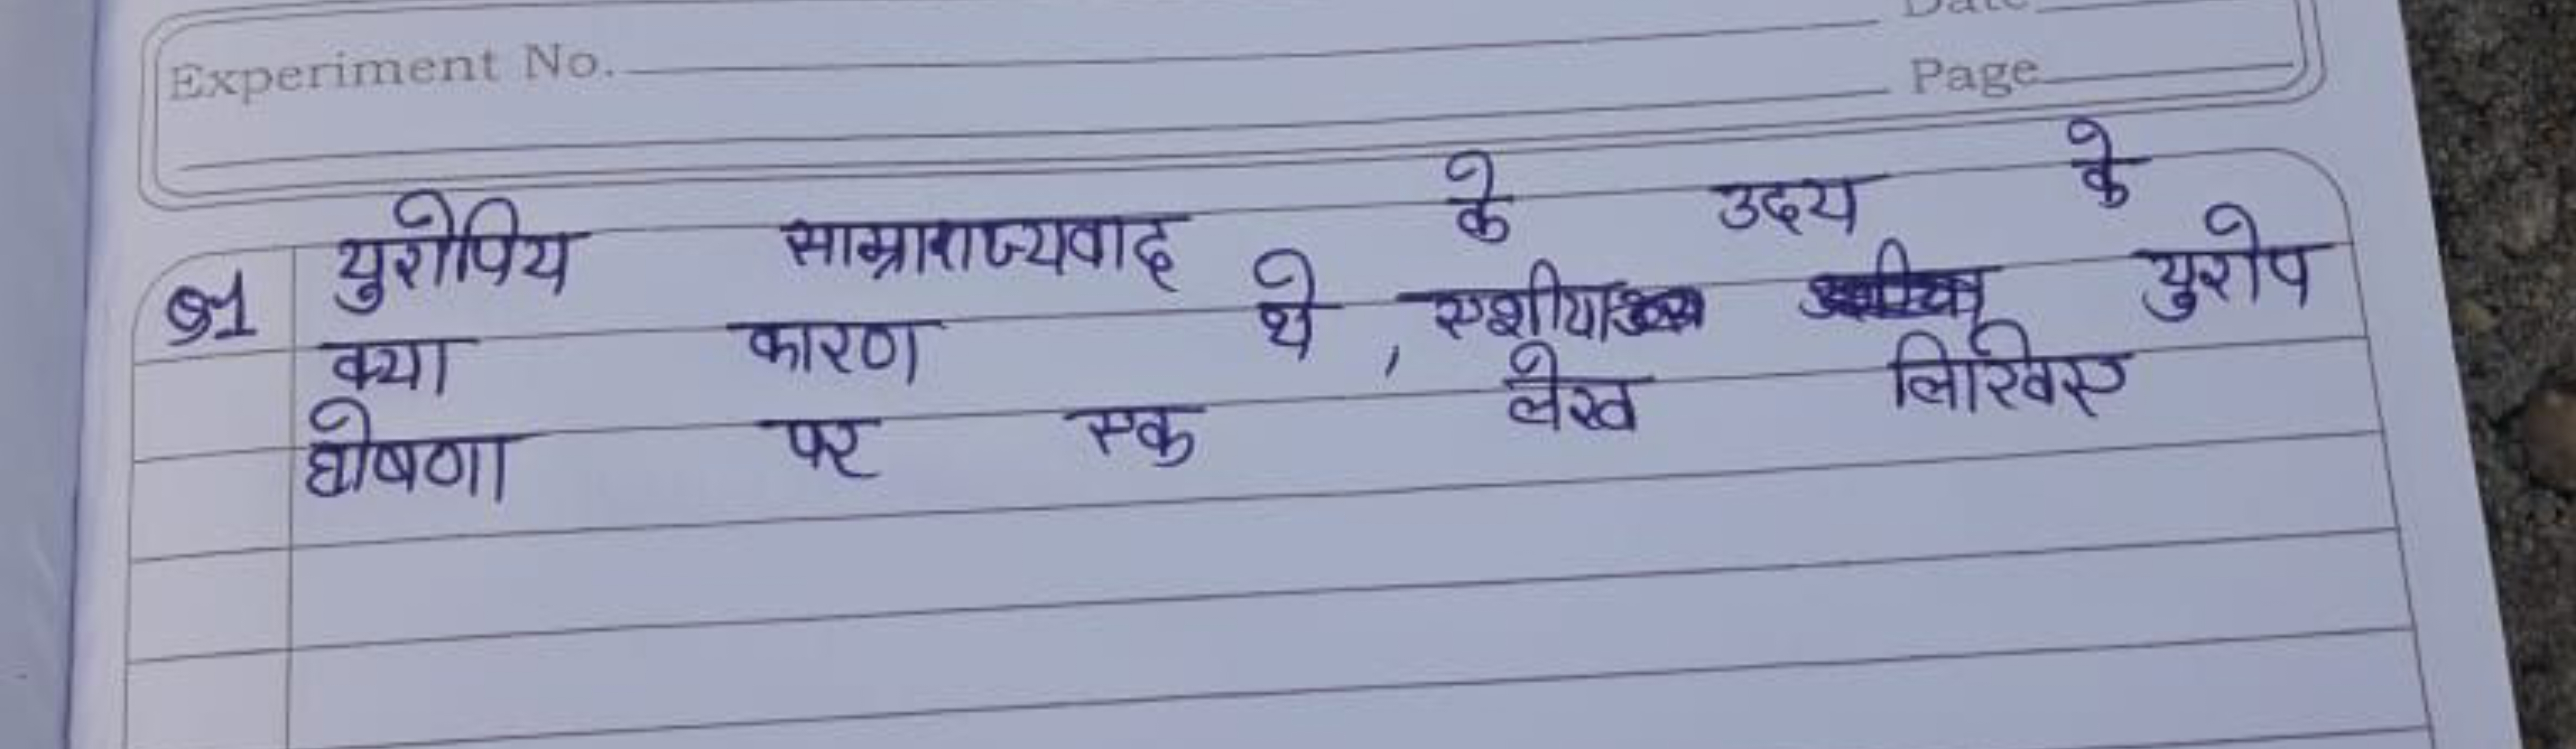 Experiment No.
Date
Page
Q1 युरोपिय साम्राराज्यवाद के उदय के
क्या कारण थे , एशीया युरोप
घोषणा पर एक लेख लिखिए